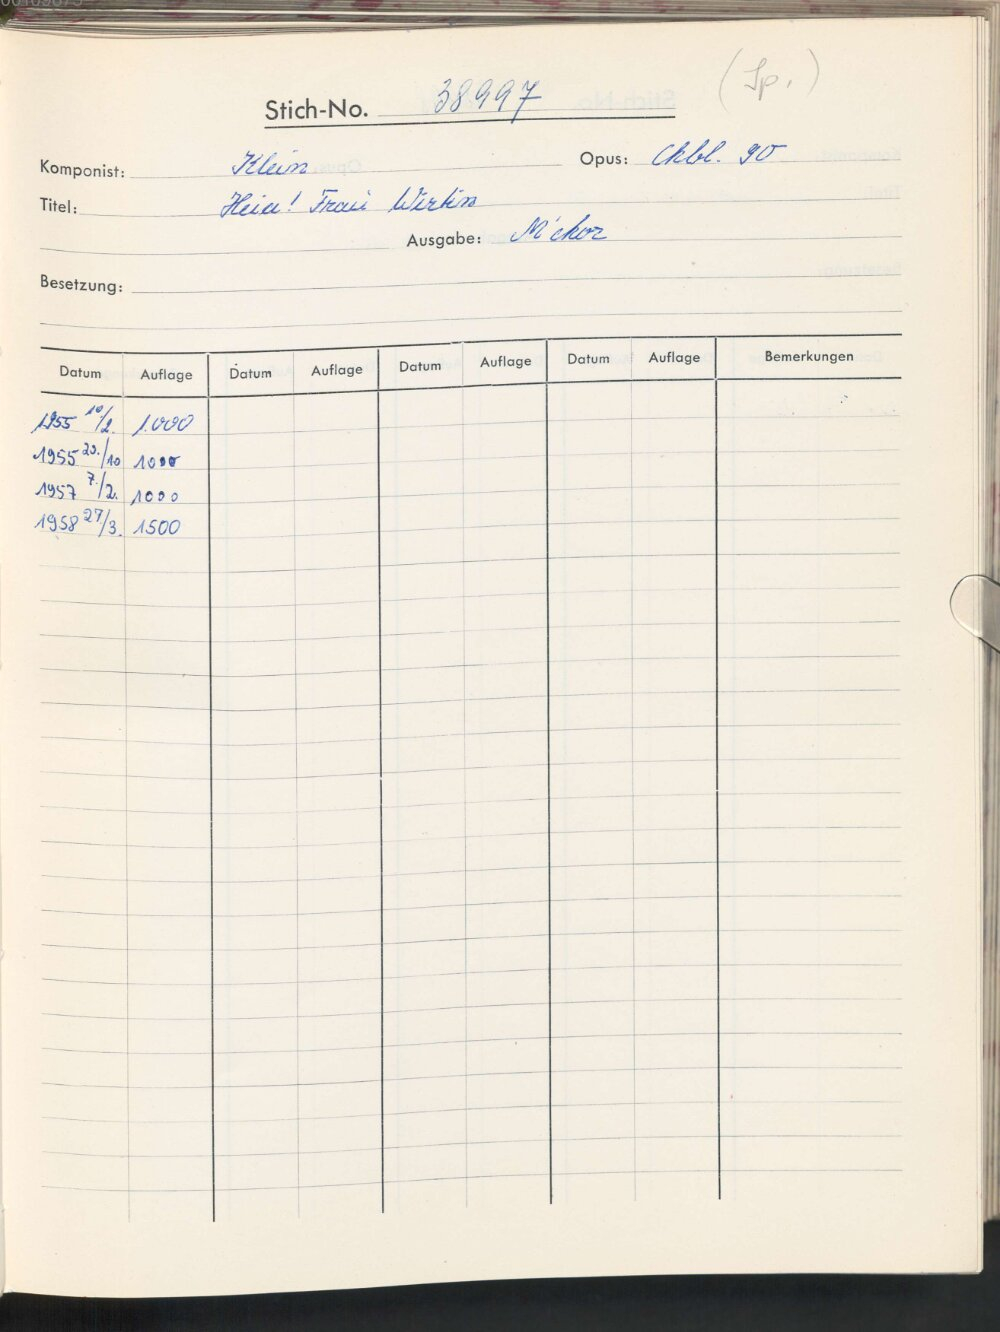 (Sp.)
Stich-No. 38997
Komponist: Klein Opus: Chbl. 90
Titel: Heia! Frau Wirtin
Ausgabe: M'chor
Besetzung:
Datum Auflage Datum Auflage Datum Auflage Datum Auflage Bemerkungen
1955 10/2. 1.000
1955 29./10 1000
1957 7./2. 1000
1958 27/3. 1500